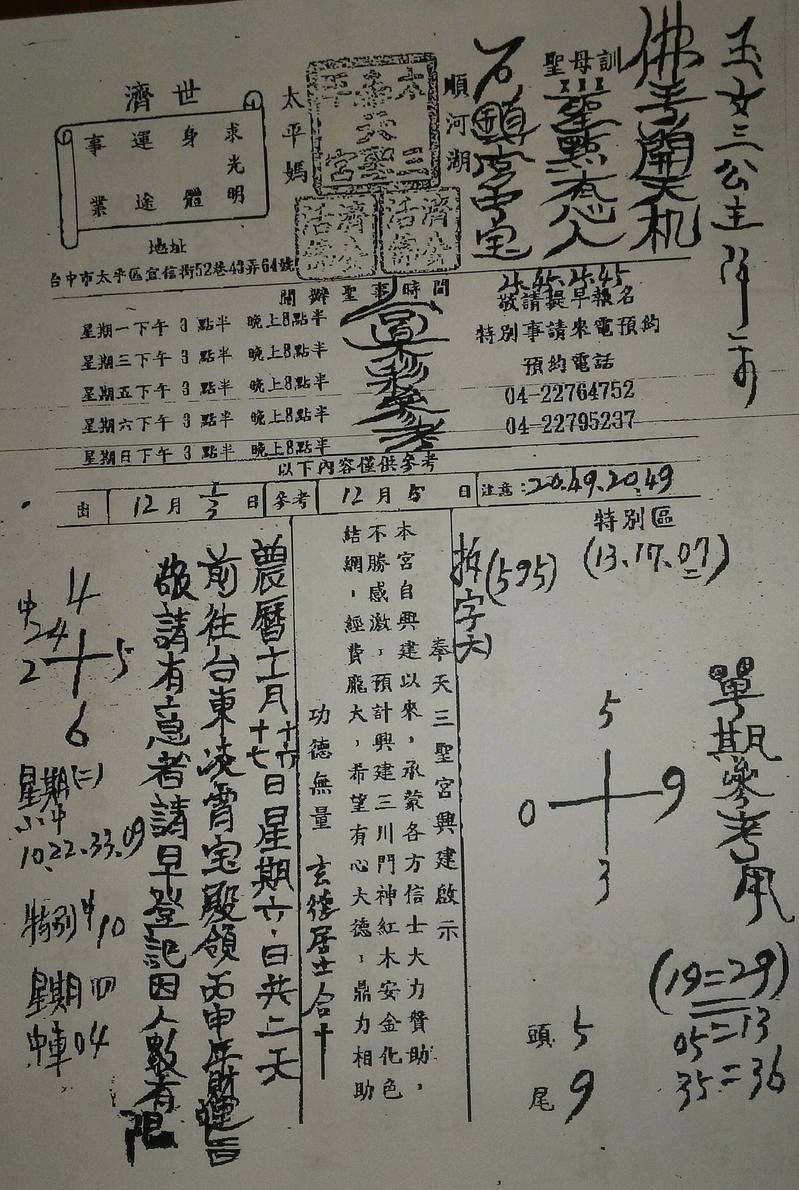 玉女三公主降示
佛手開天机
聖母訓
聖點有心人
石頭變金宝
24.45.24.45
順河湖
太平媽
本三聖天奉宮
濟公活佛
濟公活佛
濟世
求光明
身體
運途
事業
地址
台中市太平區宜信街52巷43弄64號
開辦聖事時間
星期一下午 3 點半 晚上8點半
星期三下午 3 點半 晚上8點半
星期五下午 3 點半 晚上8點半
星期六下午 3 點半 晚上8點半
星期日下午 3 點半 晚上8點半
參考
敬請提早報名
特別事請來電預約
預約電話
04-22764752
04-22795237
以下內容僅供參考
由 12月 1/3 日 參考 12月 5 日 注意:20.49.20.49
特別區
(13.17.07)
拆字(595)
大)
5
0 9
3
單期參考用
(19=29)
05=13
35=36
頭 5
尾 9
奉天三聖宮興建啟示
本宮自興建以來,承蒙各方信士大力贊助,
不勝感激,預計興建三川門神紅木安金化色
結網,經費龐大,希望有心大德,鼎力相助
功德無量 玄德居士合十
農曆十二月十六十七日星期六,日共二天
前往台東凌霄宝殿領丙申年財運旨
敬請有意者請早登記因人數有限
4
中24
2 5
6
星期(二)
小中
10.22.33.09
特別中10
星期四
中車04